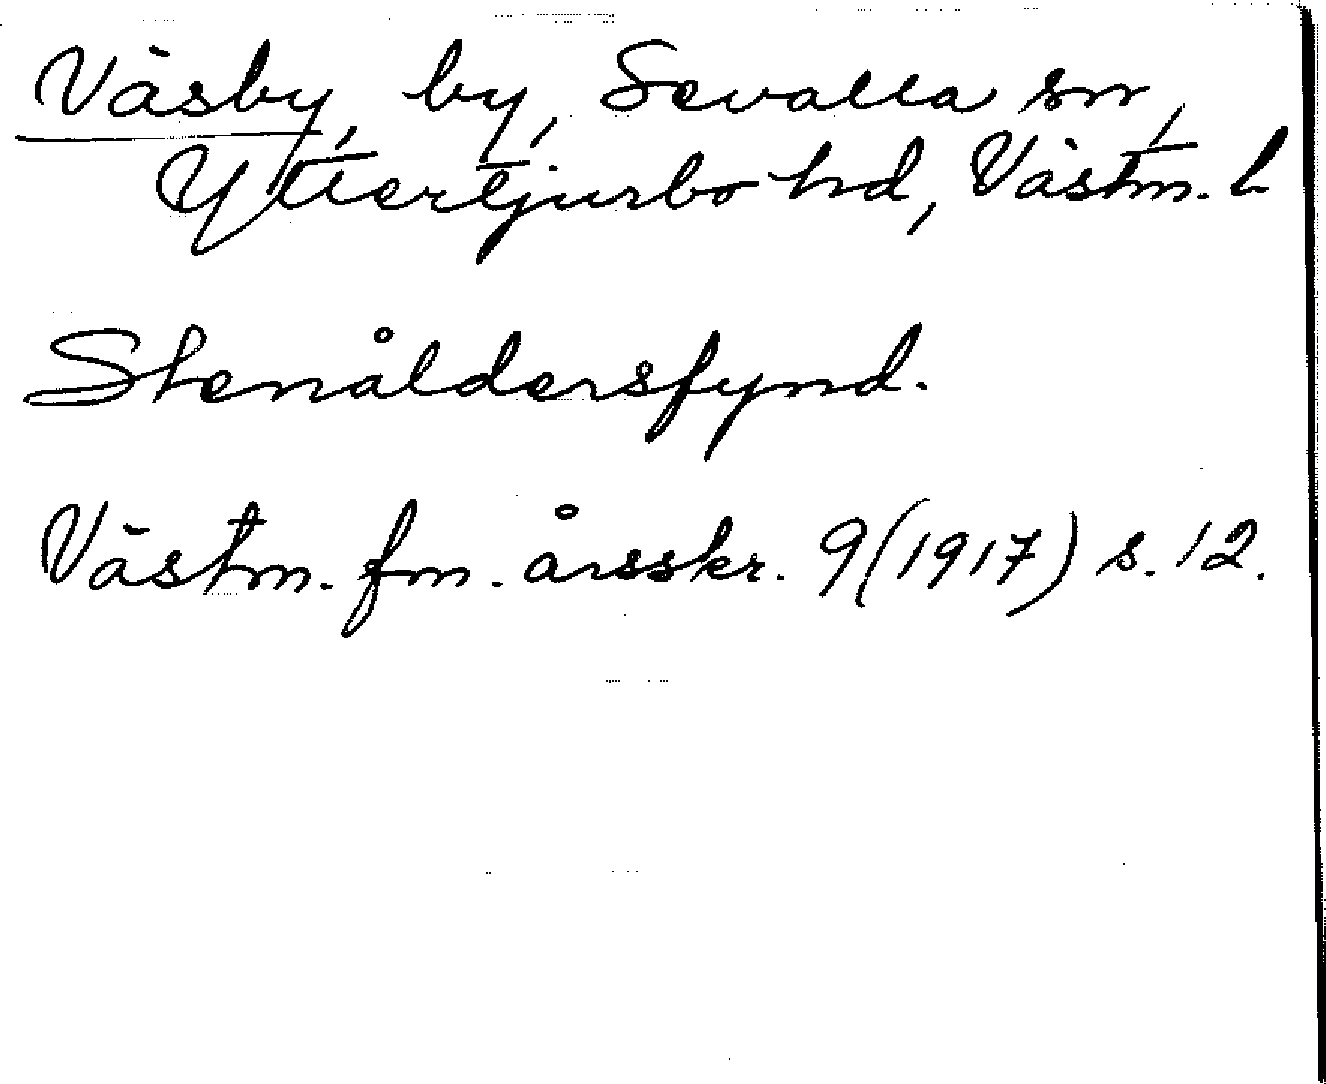 Väsby, by, Sevalla sn,
Yttertjurbo hd, Västm. l
Stenåldersfynd.
Västm. fm. årsskr. 9 (1917) s. 12.